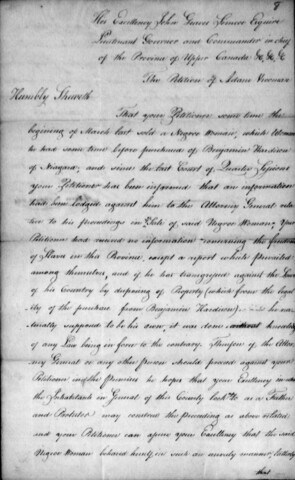 His Excellency John Graves Simcoe Esquire
Lieutenant Governor and Commander in chief
of the Province of Upper Canada &c &c &c
The Petition of Adam Vrooman
Humbly Sheweth
That your Petitioner some time the
begining of March last sold a Negroe Woman, which Woman
he had some time before purchased of Benjamin Hardison
of Niagara; and since the last Court of Quarter Sessions
your Petitioner has been informed that an information
had been lodged against him to the Attorney General rela-
tive to his proceedings in Sale of said Negroe Woman; Your
Petitioner had received no information concerning the freedom
of Slaves in this Province, except a report which prevailed
among themselves, and if he has transgressed against the Laws
of his Country by disposing of Property (which from the legali-
ty of the purchase from Benjamin Hardison) he nat-
urally supposed to be his own, it was done without knowledge
of any Law being in force to the contrary. Therefore if the Attor-
ney General or any other person should proceed against your
Petitioner in the Premises he hopes that your Excellency
the Inhabitants in General of this County as a Father
and Protector may construe the preceeding as above related
and your Petitioner can assure your Excellency that the said
Negroe Woman behaved herself in such an unruly manner,
that